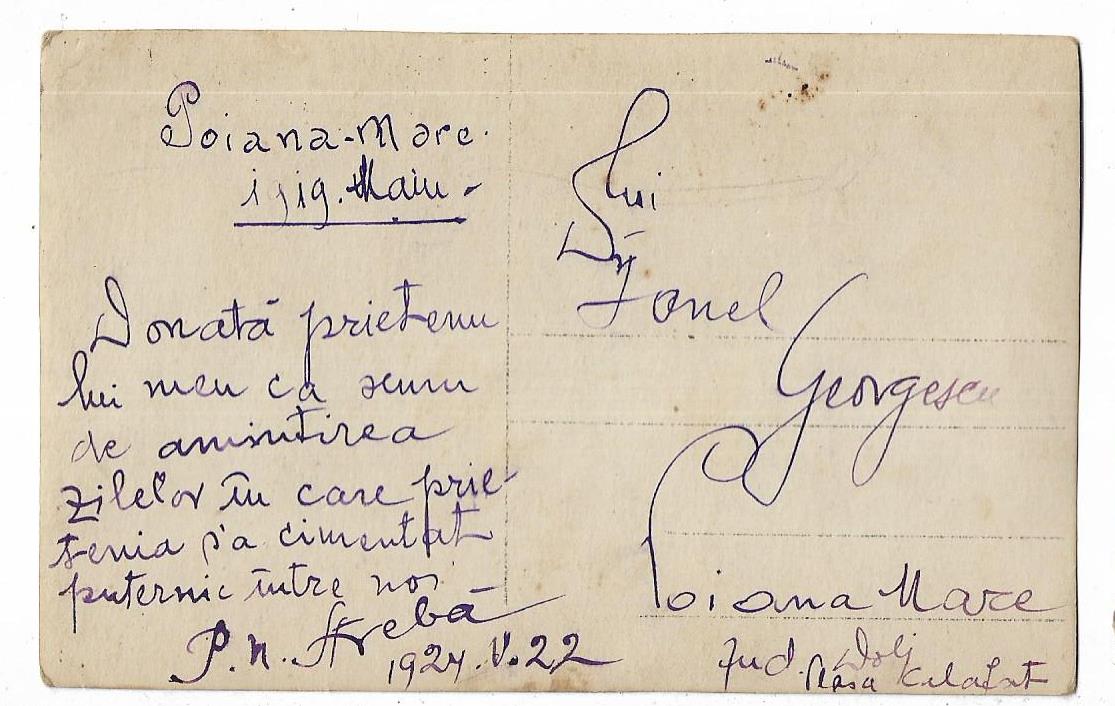 Poiana-Mare.
Maiu -
Donată prietenu
lui meu ca semn
de amintirea
zilelor în care prie-
tenia s'a cimentat
puternic între noi
P.N.
1924.V.22
Lui
Ionel
Georgescu
Poiana Mare
Jud. Dolj
Plasa Calafat